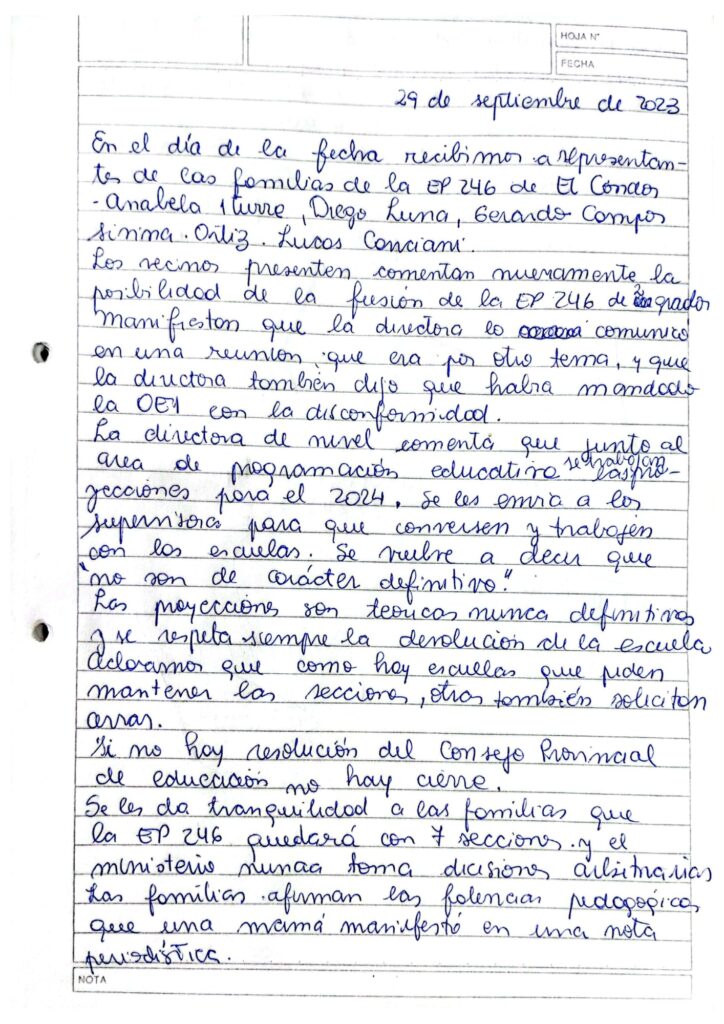 HOJA N°
FECHA
29 de septiembre de 2023
En el día de la fecha recibimos a representan-
tes de las familias de la EP 246 de El Condor
- Anabela Iturre, Diego Luna, Gerardo Campos
Ortiz. Lucas Conciani.
Los vecinos presenten comentan nuevamente la
posibilidad de la fusión de la EP 246 de 2 grados
manifiestan que la directora lo comunicó
en una reunión, que era por otro tema, y que
la directora también dijo que habra mandado
la OE1 con la disconformidad.
La directora de nivel comentá que junto al
area de programación educativa se trabajan las pro-
yecciones para el 2024. Se les envia a los
supervisores para que conversen y trabajen
con las escuelas. Se vuelve a decir que
"no son de carácter definitivo."
Las proyecciones son teoricas nunca definitivas
y se respeta siempre la devolución de la escuela
Aclaramos que como hay escuelas que piden
mantener las secciones, otras también solicitan
cerrar.
"Si no hay resolución del Consejo Provincial
de educación no hay cierre.
Se les da tranquilidad a las familias que
la EP 246 quedará con 7 secciones y el
ministerio nunca toma decisiones arbitrarias
Las familias afirman las falencias pedagógicas
que una mamá manifestó en una nota
periodística.
NOTA